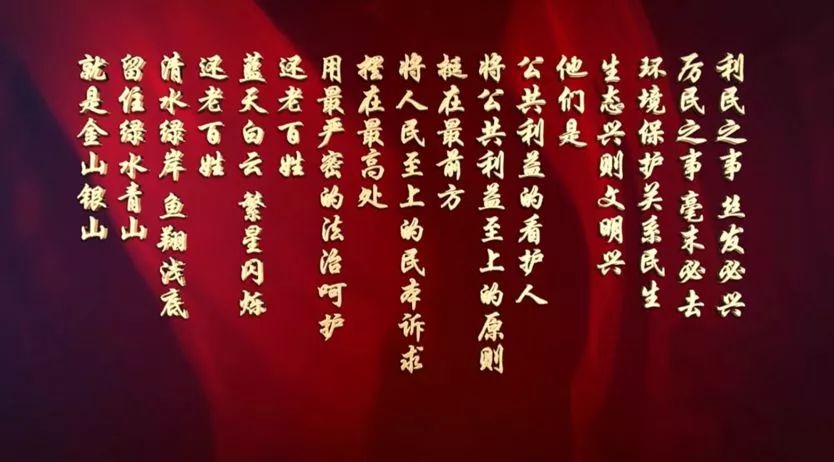 利民之事 丝发必兴
厉民之事 毫末必去
环境保护关系民生
生态兴则文明兴
他们是
公共利益的看护人
将公共利益至上的原则
挺在最前方
将人民至上的民本诉求
摆在最高处
用最严密的法治呵护
还老百姓
蓝天白云 繁星闪烁
还老百姓
清水绿岸 鱼翔浅底
留住绿水青山
就是金山银山